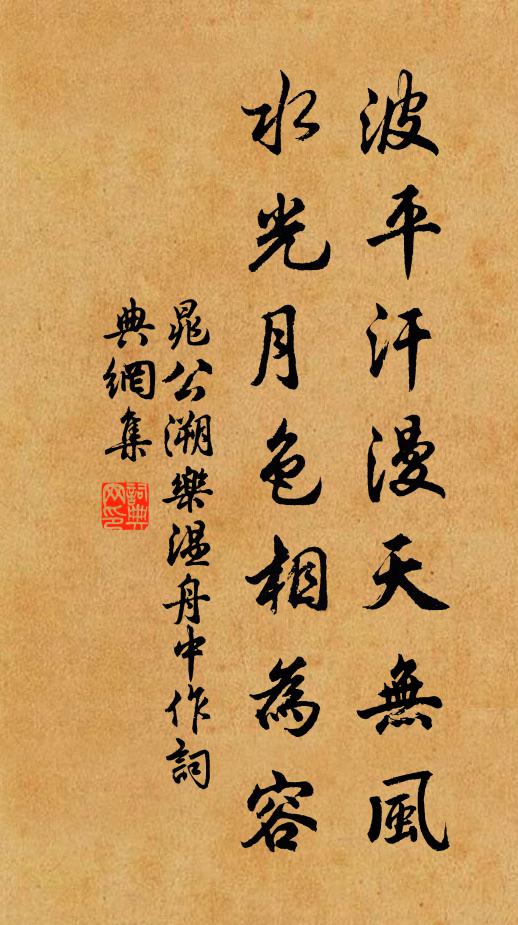 波平汗漫天無風
水光月色相為容
晁公溯樂溫舟中作詞
典網集
詞典
网印